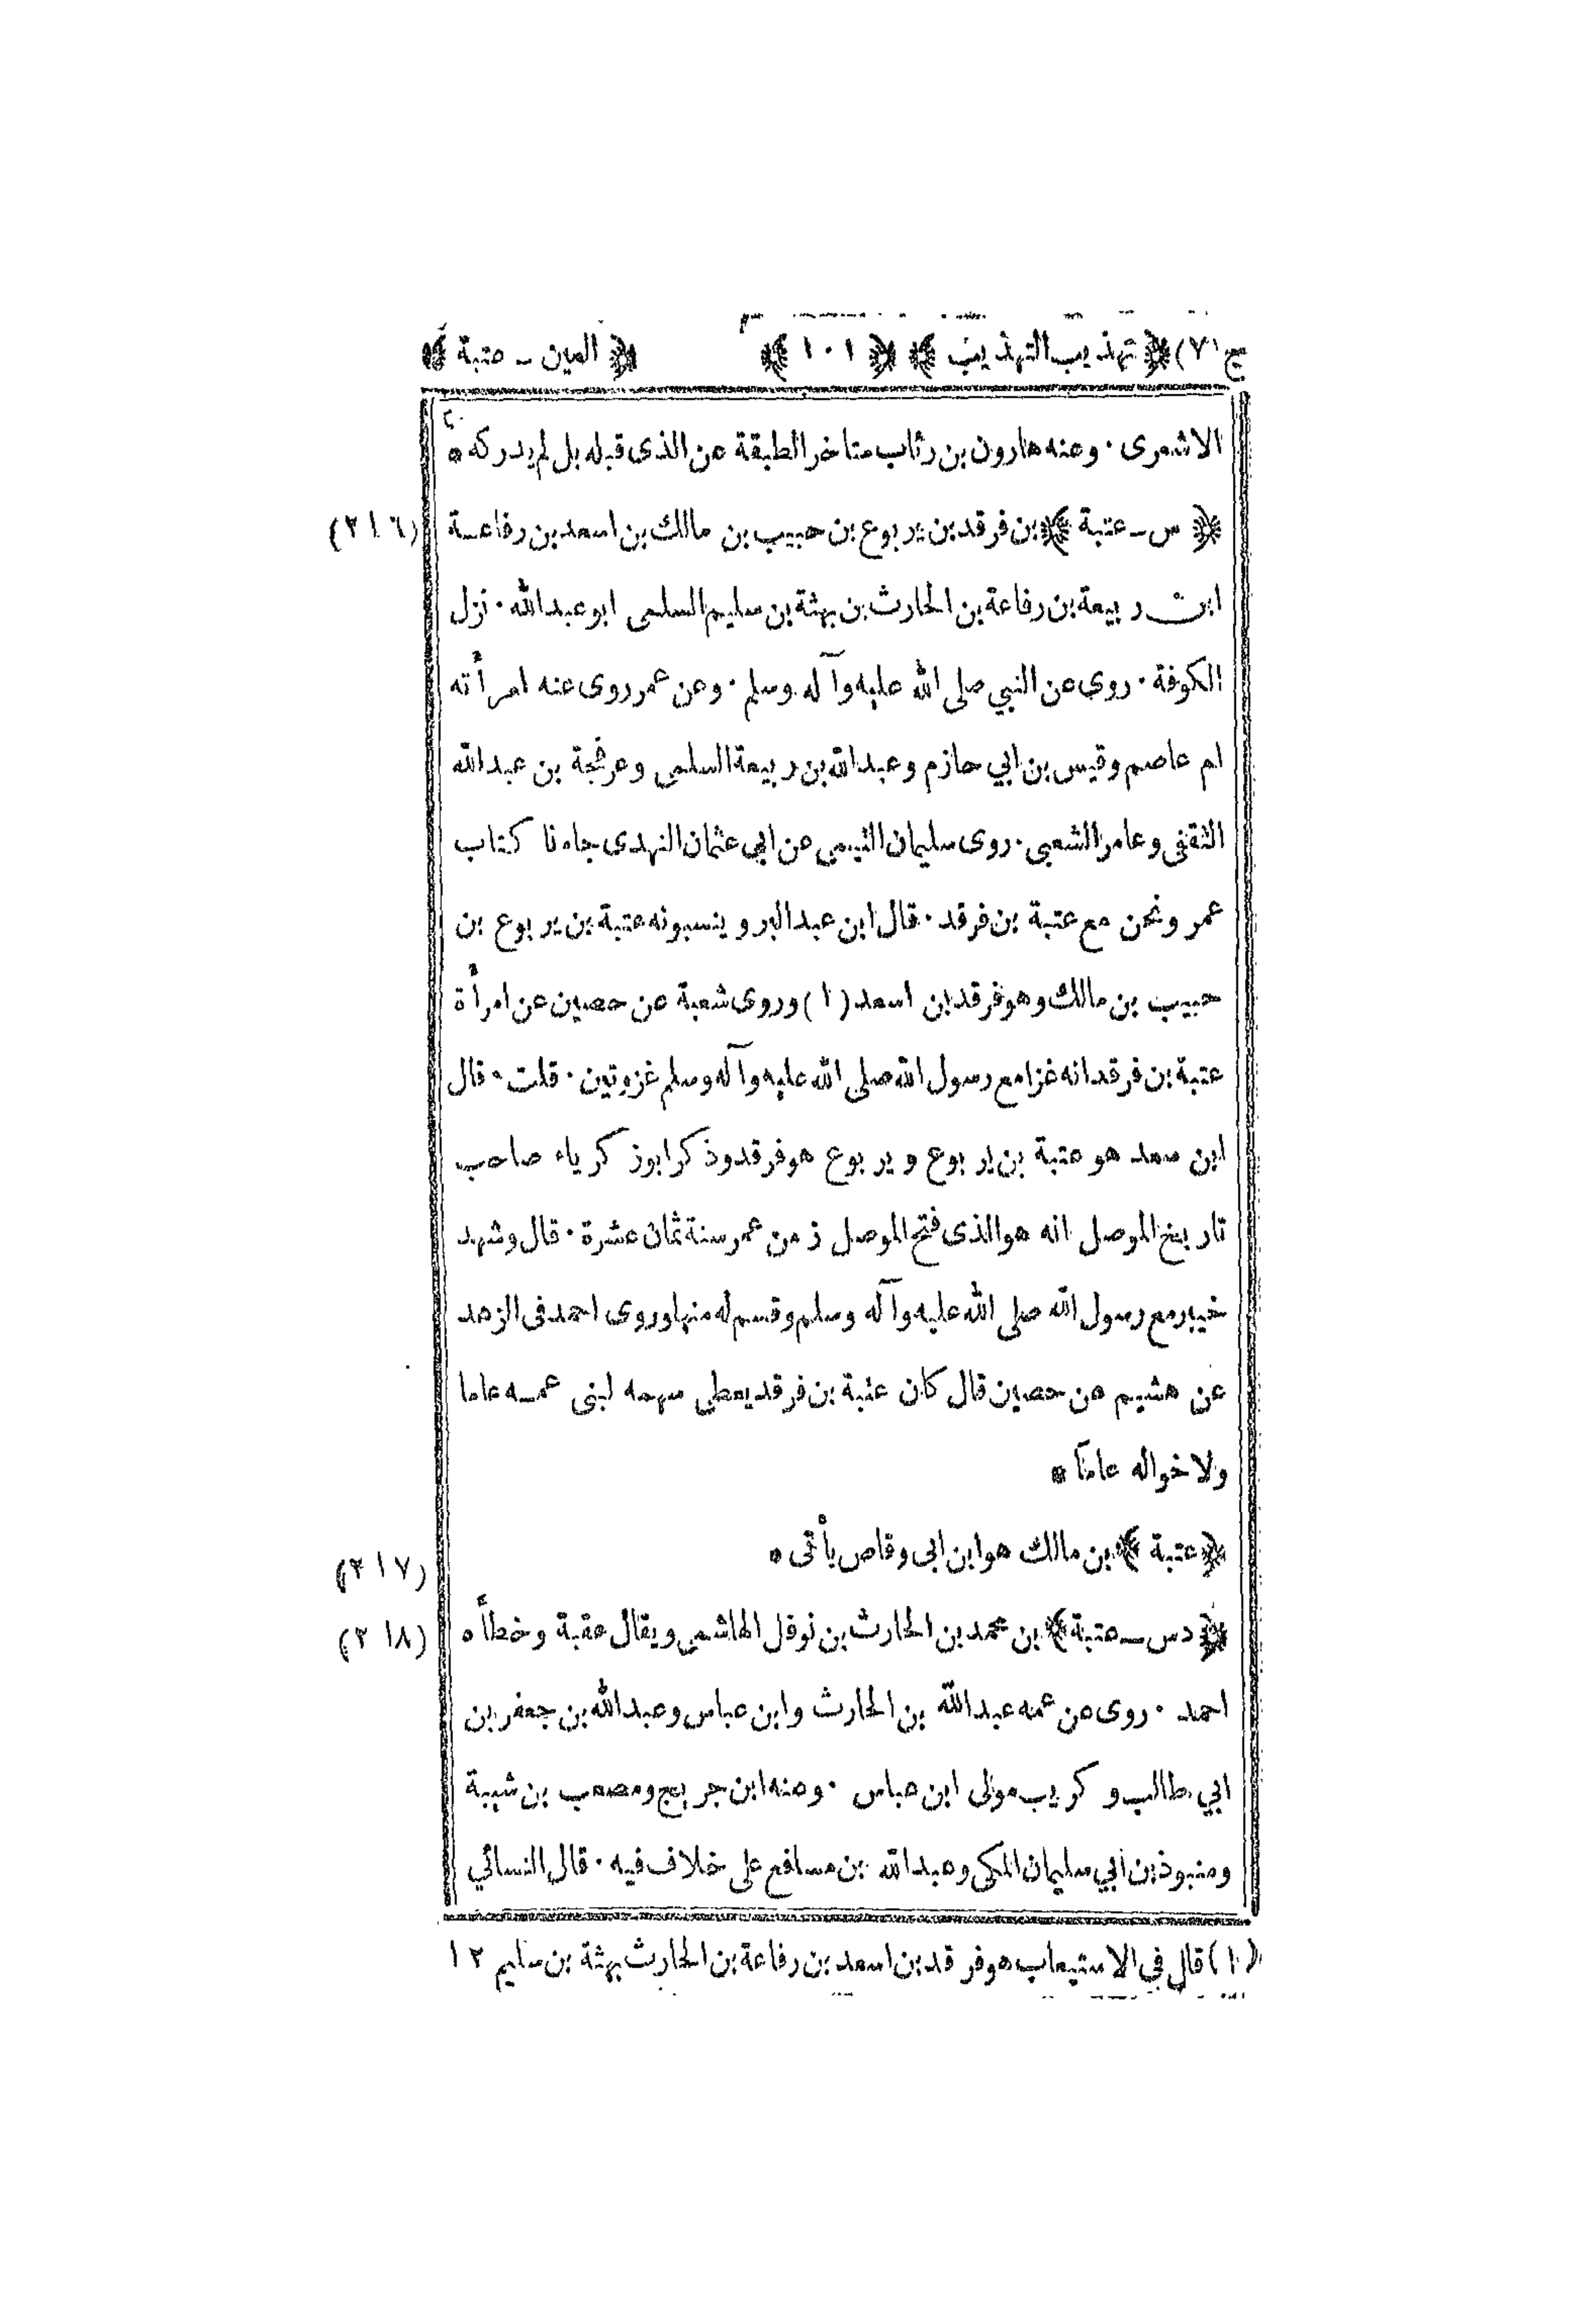 ج (٧) ﴿ تهذيب التهذيب ﴾ ﴿ ١٠١ ﴾ ﴿ العين ــ عتبة ﴾
الاشعرى٠ وعنه هارون بن رئاب متاخر الطبقة عن الذى قبله بل لم يدركه *
﴿ س ــ عتبة ﴾ بن فرقد بن يربوع بن حبيب بن مالك بن اسعد بن رفاعة (٢١٦)
ابن ربيعة بن رفاعة بن الحارث بن بهثة بن سليم السلمى ابو عبد الله٠ نزل
الكوفة٠ روى عن النبي صلى الله عليه وآله وسلم٠ وعن عمر روى عنه امرأته
ام عاصم وقيس بن ابي حازم وعبد الله بن ربيعة السلمى وعرفجة بن عبد الله
الثقفى وعامر الشعبى٠ روى سليمان التيمى عن ابى عثمان النهدى جاءنا كتاب
عمر ونحن مع عتبة بن فرقد٠ قال ابن عبد البر وينسبونه عتبة بن يربوع بن
حبيب بن مالك وهو فرقد ابن اسعد (١) وروى شعبة عن حصين عن امرأة
عتبة بن فرقد انه غزا مع رسول الله صلى الله عليه وآله وسلم غزوتين٠ قلت٠ قال
ابن سعد هو عتبة بن يربوع ويربوع هو فرقد وذكر ابو زكرياء صاحب
تاريخ الموصل انه هو الذى فتح الموصل زمن عمر سنة ثمان عشرة٠ قال وشهد
خيبر مع رسول الله صلى الله عليه وآله وسلم وقسم له منها وروى احمد فى الزهد
عن هشيم عن حصين قال كان عتبة بن فرقد يعطى سهمه لبنى عمه عاما
ولاخواله عاما *
﴿ عتبة ﴾ بن مالك هو ابن ابى وقاص يأتى * (٢١٧)
﴿ دس ــ عتبة ﴾ بن محمد بن الحارث بن نوفل الهاشمى ويقال عقبة وخطأه (٢١٨)
احمد ٠ روى عن عمه عبد الله بن الحارث وابن عباس وعبد الله بن جعفر بن
ابي طالب وكريب مولى ابن عباس ٠ وعنه ابن جريج ومصعب بن شيبة
ومنبوذ بن ابي سليمان المكى وعبد الله بن مسافع على خلاف فيه٠ قال النسائي
(١) قال في الاستيعاب هو فرقد بن اسعد بن رفاعة بن الحارث بهثة بن سليم ١٢